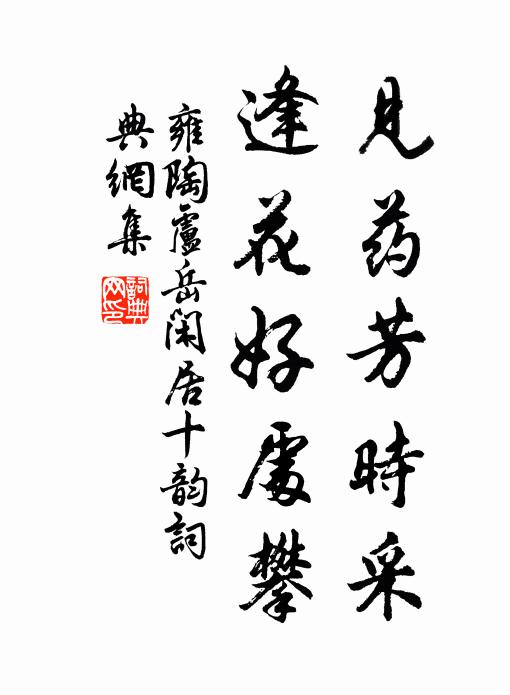 见药芳時采
逢花好處攀
雍陶廬岳閑居十韵詞
典網集
詞典网印